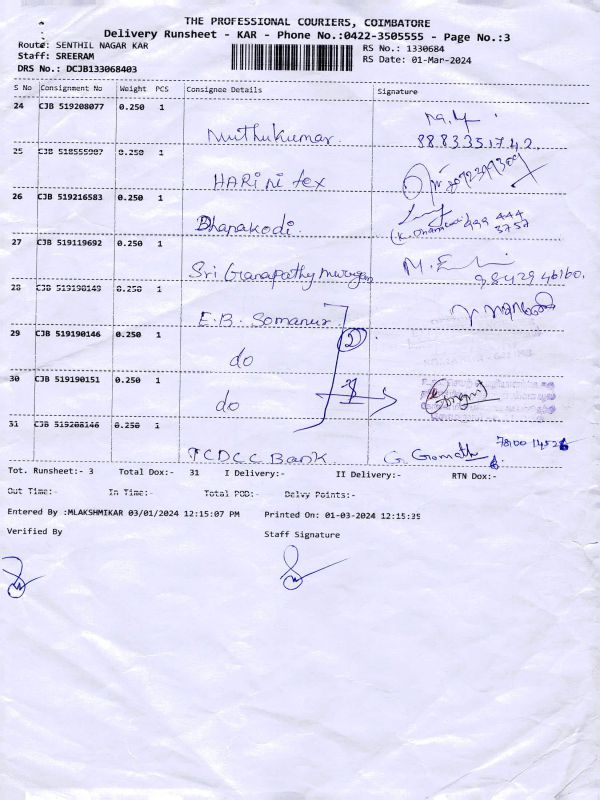 THE PROFESSIONAL COURIERS, COIMBATORE
Delivery Runsheet - KAR - Phone No.:0422-3505555 - Page No.:3
Route: SENTHIL NAGAR KAR
RS No.: 1330684
Staff: SREERAM
RS Date: 01-Mar-2024
DRS No.: DCJB133068403
S No Consignment No Weight PCS Consignee Details Signature
24 CJB 519208077 0.250 1
Muthukumar 8883351742
25 CJB 518555987 0.250 1
HARINI tex
26 CJB 519216583 0.250 1
Dhanakodi. 499 444 3757
27 CJB 519119692 0.250 1
Sri Ganapathy murugan 98429 46160.
28 CJB 519190149 0.250 1
E.B. Somanur
29 CJB 519190146 0.250 1
do 2
30 CJB 519190151 0.250 1
do
31 CJB 519208146 0.250 1
TCDCC Bank G Gomathi
Tot. Runsheet:- 3 Total Dox:- 31 I Delivery:- II Delivery:- RTN Dox:-
Out Time:- In Time:- Total POD:- Delvy Points:-
Entered By :MLAKSHMIKAR 03/01/2024 12:15:07 PM Printed On: 01-03-2024 12:15:35
Verified By Staff Signature